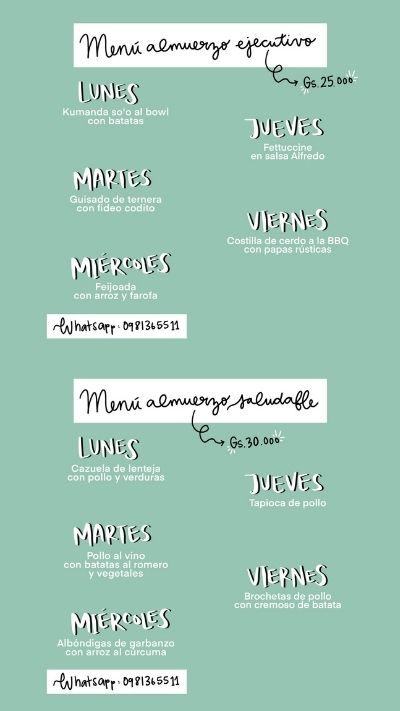 Menú almuerzo ejecutivo
Gs.25.000
LUNES
Kumanda so'o al bowl
con batatas
MARTES
Guisado de ternera
con fideo codito
MIÉRCOLES
Feijoada
con arroz y farofa
JUEVES
Fettuccine
en salsa Alfredo
VIERNES
Costilla de cerdo a la BBQ
con papas rústicas
Whatsapp: 0981365511
Menú almuerzo saludable
Gs.30.000
LUNES
Cazuela de lenteja
con pollo y verduras
MARTES
Pollo al vino
con batatas al romero
y vegetales
MIÉRCOLES
Albóndigas de garbanzo
con arroz al cúrcuma
JUEVES
Tapioca de pollo
VIERNES
Brochetas de pollo
con cremoso de batata
Whatsapp: 0981365511